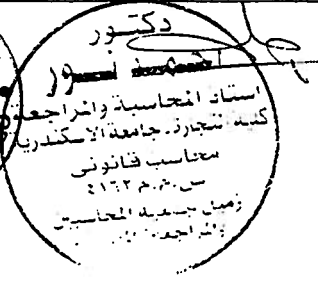 دكتور
استاذ المحاسبة والمراجعة
كلية التجارة - جامعة الاسكندرية
محاسب قانونى
س.م.م ٢١٦٢
زميل جمعية المحاسبين
والمراجعين